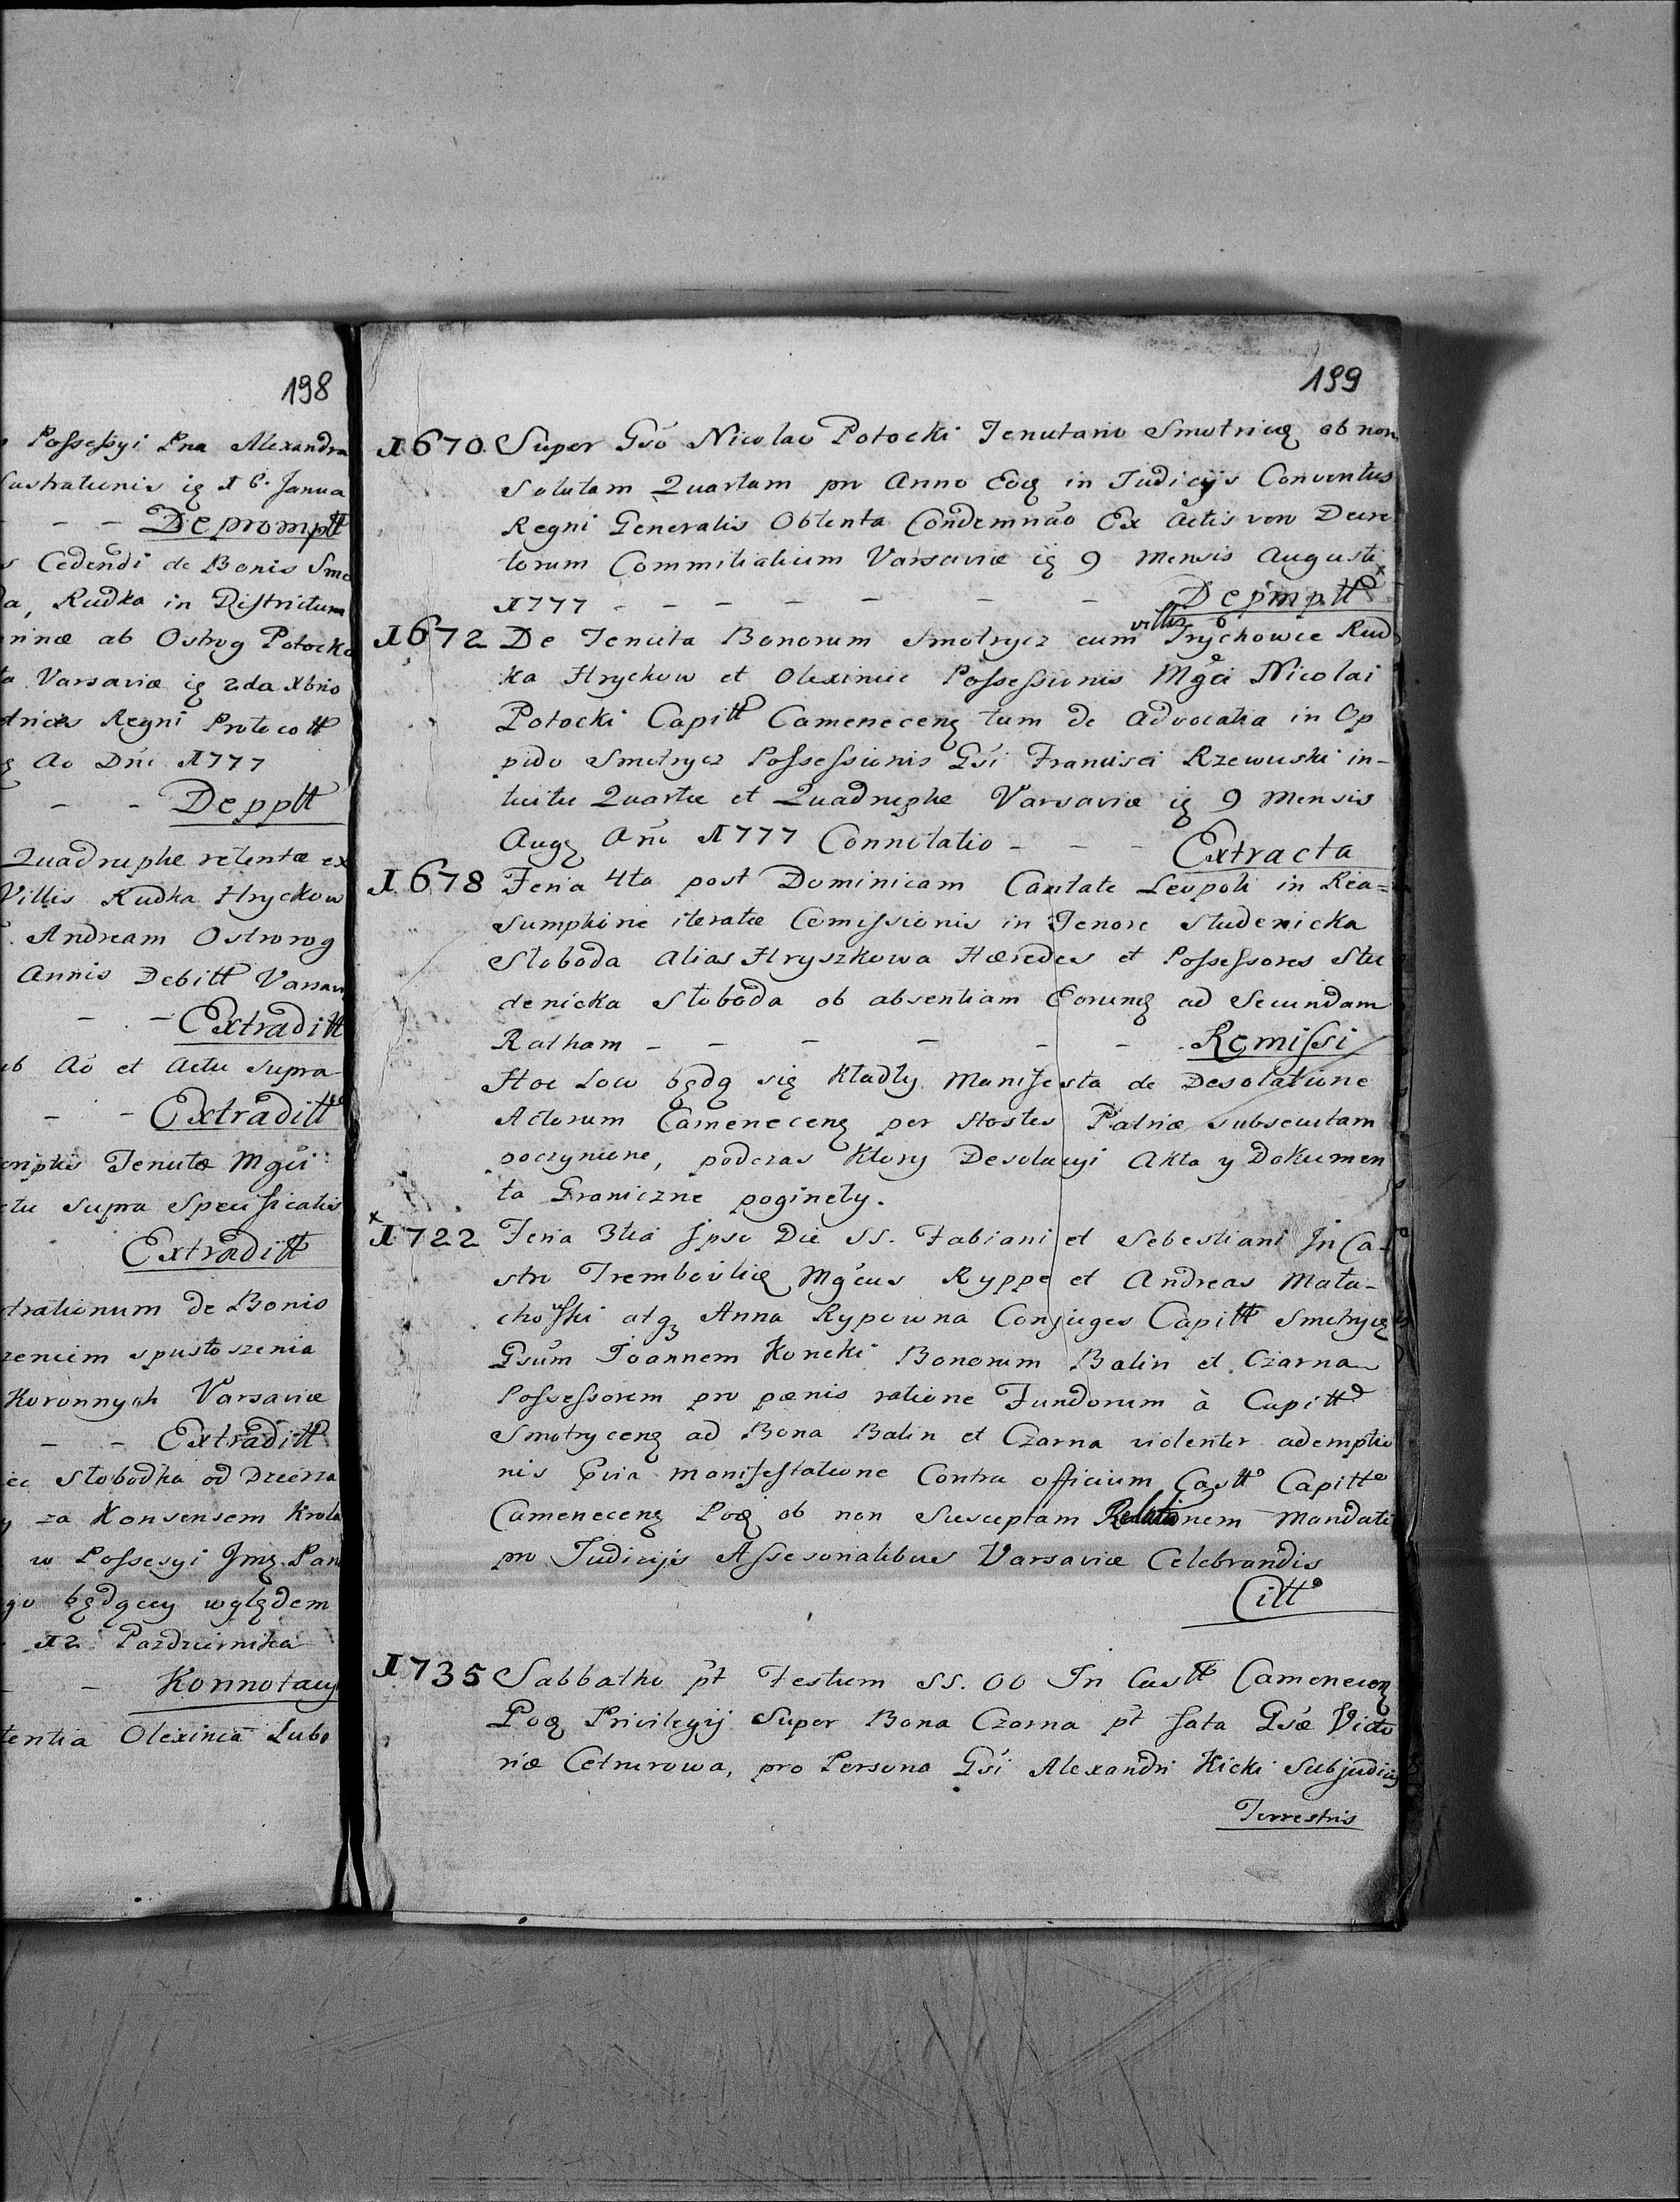 198
Possessyi Pna Alexandra
Lustrationis ię 16. Janua
- - Depromptt
Cedendi de Bonis Smo
da, Rudka in Districtum
ninæ ab Ostrog Potocko
ta Varsaviæ ię 2da Xbris
tricis Regni Protocott
Ao Dni 1777
- - Depptt
Quadruplæ retentæ ex
Villis Rudka Hryckow
Andream Ostrorog
Annis Debitt Varsav
- - Extraditt
ub Ao et Actu supra
- - Extraditt
criptis Tenutæ Mgci
ctu supra Specificatis
Extraditt
trationum de Bonis
zeniem spustoszenia
Koronnych Varsaviæ
- - Extraditt
iec Słobodka od Dzierza
y za Konsensem Krola
w Possesyi Jmę Pan
go będącey względem
12 Pazdziernika
- - Konnotacy
tentia Olexinca Lubo
199
1670. Super Gso Nicolao Potocki Tenutario Smotricę ob non
Solutam Quartam pro Anno Eoę in Judicijs Conventus
Regni Generalis Obtenta Condemnão Ex Actis vero Decre
torum Commitialium Varsaviæ ię 9 Mensis Augusti
1777 - - - - - - Depmptt
1672 De Tenuta Bonorum Smotrycz cum villis Trychowce Rud
ka Hryckow et Olexinie Possessionis Mgci Nicolai
Potocki Capitt Cameneceng tum de Advocatia in Op
pido Smotrycz Possessionis Gsi Francisci Rzewuski in-
tuitu Quartæ et Quadruplæ Varsaviæ ię 9 Mensis
Augę Ano 1777 Connotatio - - - Extracta
1678 Feria 4ta post Dominicam Cantate Leopoli in Rea=
sumptione iteratæ Comissionis in Tenore Studenicka
Słoboda alias Hryszkowa Hæredes et Possessores Stu
denicka Słoboda ob absentiam Eorumę ad Secundam
Ratham - - - - - - Remissi
Hoc Loco będą się Kładły Manifesta de Desolatione
Actorum Cameneceng per Hostes Patriæ subsecutam
poczynione, podczas Ktory Desolacyi Akta y Dokumen
ta Graniczne poginely.
1722 Feria 3tia Ipso Die SS. Fabiani et Sebestiani In Ca-
stro Trembovlię Mgcus Ryppe et Andreas Mała-
choffski atqz Anna Rypowna Conjuges Capitt Smotrycę
Gsum Joannem Koncki Bonorum Balin et Czarna
Possessorem pro pænis ratione Fundorum à Capitt
Smotryceng ad Bona Balin et Czarna violenter ademptio
nis pvia manifestatione Contra officium Castt Capitt
Cameneceng Poę ob non Susceptam Relationem Mandati
pro Judicijs Assesorialibus Varsaviæ Celebrandis
Citt
1735 Sabbatho pt Festum SS. OO In Castt Cameneceng
Poę Privilegij Super Bona Czarna pt fata Gsæ Victo
riæ Cetnerowa, pro Persona Gsi Alexandri Kicki Subjudicis
Terrestris